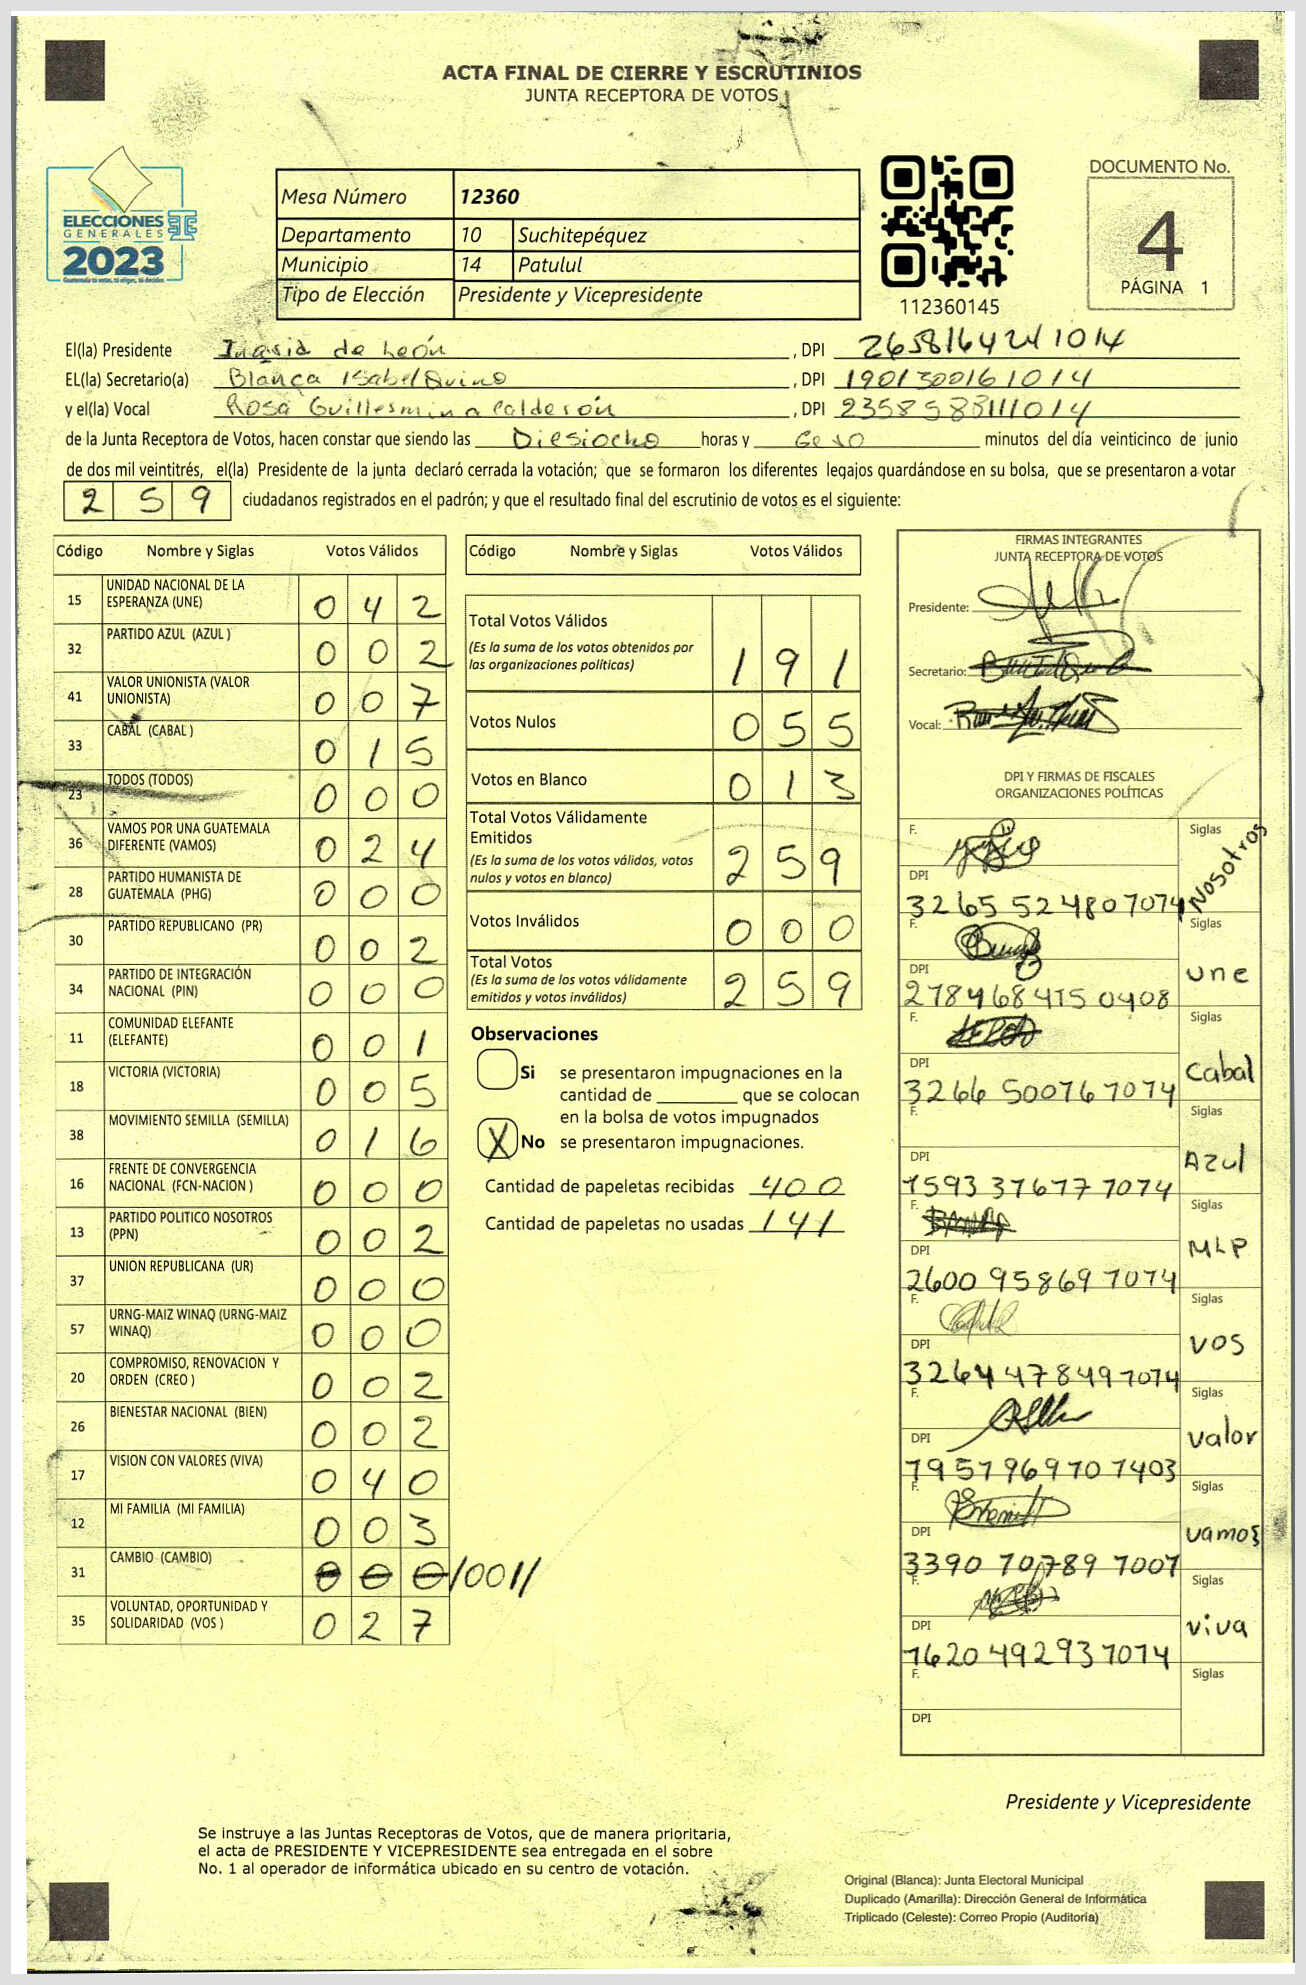 ACTA FINAL DE CIERRE Y ESCRUTINIOS
JUNTA RECEPTORA DE VOTOS
ELECCIONES
GENERALES
2023
Mesa Número 12360
Departamento 10 Suchitepéquez
Municipio 14 Patulul
Tipo de Elección Presidente y Vicepresidente
112360145
DOCUMENTO No.
4
PÁGINA 1
El(la) Presidente Ingrid de León , DPI 2658164241014
EL(la) Secretario(a) Blanca Isabel Quino , DPI 1901300161014
y el(la) Vocal Rosa Guillesmina Calderón , DPI 2358588111014
de la Junta Receptora de Votos, hacen constar que siendo las Diesiocho horas y Cero minutos del día veinticinco de junio
de dos mil veintitrés, el(la) Presidente de la junta declaró cerrada la votación; que se formaron los diferentes legajos guardándose en su bolsa, que se presentaron a votar
2 5 9 ciudadanos registrados en el padrón; y que el resultado final del escrutinio de votos es el siguiente:
Código Nombre y Siglas Votos Válidos
15 UNIDAD NACIONAL DE LA ESPERANZA (UNE) 0 4 2
32 PARTIDO AZUL (AZUL ) 0 0 2
41 VALOR UNIONISTA (VALOR UNIONISTA) 0 0 7
33 CABAL (CABAL ) 0 1 5
23 TODOS (TODOS) 0 0 0
36 VAMOS POR UNA GUATEMALA DIFERENTE (VAMOS) 0 2 4
28 PARTIDO HUMANISTA DE GUATEMALA (PHG) 0 0 0
30 PARTIDO REPUBLICANO (PR) 0 0 2
34 PARTIDO DE INTEGRACIÓN NACIONAL (PIN) 0 0 0
11 COMUNIDAD ELEFANTE (ELEFANTE) 0 0 1
18 VICTORIA (VICTORIA) 0 0 5
38 MOVIMIENTO SEMILLA (SEMILLA) 0 1 6
16 FRENTE DE CONVERGENCIA NACIONAL (FCN-NACION ) 0 0 0
13 PARTIDO POLITICO NOSOTROS (PPN) 0 0 2
37 UNION REPUBLICANA (UR) 0 0 0
57 URNG-MAIZ WINAQ (URNG-MAIZ WINAQ) 0 0 0
20 COMPROMISO, RENOVACION Y ORDEN (CREO ) 0 0 2
26 BIENESTAR NACIONAL (BIEN) 0 0 2
17 VISION CON VALORES (VIVA) 0 4 0
12 MI FAMILIA (MI FAMILIA) 0 0 3
31 CAMBIO (CAMBIO) 0 0 0 /001//
35 VOLUNTAD, OPORTUNIDAD Y SOLIDARIDAD (VOS ) 0 2 7
Código Nombre y Siglas Votos Válidos
Total Votos Válidos
(Es la suma de los votos obtenidos por
las organizaciones políticas) 1 9 1
Votos Nulos 0 5 5
Votos en Blanco 0 1 3
Total Votos Válidamente
Emitidos
(Es la suma de los votos válidos, votos
nulos y votos en blanco) 2 5 9
Votos Inválidos 0 0 0
Total Votos
(Es la suma de los votos válidamente
emitidos y votos inválidos) 2 5 9
Observaciones
Si se presentaron impugnaciones en la
cantidad de ________ que se colocan
en la bolsa de votos impugnados
X No se presentaron impugnaciones.
Cantidad de papeletas recibidas 400
Cantidad de papeletas no usadas 141
FIRMAS INTEGRANTES
JUNTA RECEPTORA DE VOTOS
Presidente:
Secretario:
Vocal:
DPI Y FIRMAS DE FISCALES
ORGANIZACIONES POLÍTICAS
F. Siglas Nosotros
DPI 3265 52480 7074
F. Siglas une
DPI 2784684150408
F. Siglas Cabal
DPI 3266 50076 7074
F. Siglas Azul
DPI 1593 37677 7074
F. Siglas MLP
DPI 2600 95869 7074
F. Siglas VOS
DPI 3264 47849 7074
F. Siglas valor
DPI 1957969707403
F. Siglas vamos
DPI 3390 70789 7007
F. Siglas viva
DPI 1620 49293 7074
F. Siglas
DPI
Presidente y Vicepresidente
Se instruye a las Juntas Receptoras de Votos, que de manera prioritaria,
el acta de PRESIDENTE Y VICEPRESIDENTE sea entregada en el sobre
No. 1 al operador de informática ubicado en su centro de votación.
Original (Blanca): Junta Electoral Municipal
Duplicado (Amarilla): Dirección General de Informática
Triplicado (Celeste): Correo Propio (Auditoria)